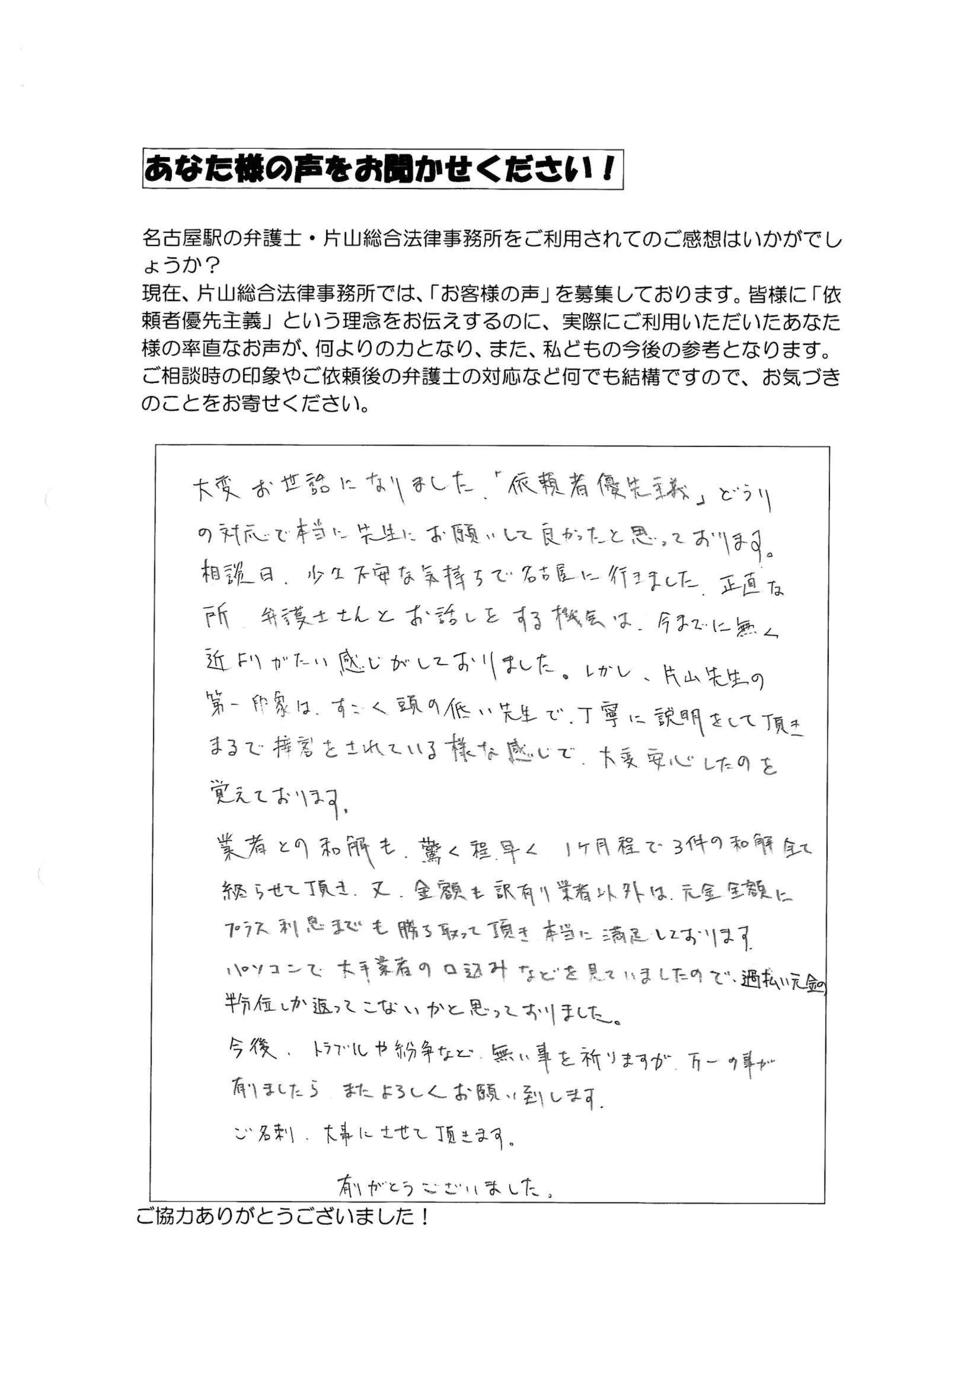 あなた様の声をお聞かせください！
名古屋駅の弁護士・片山総合法律事務所をご利用されてのご感想はいかがでし
ょうか？
現在、片山総合法律事務所では、「お客様の声」を募集しております。皆様に「依
頼者優先主義」という理念をお伝えするのに、実際にご利用いただいたあなた
様の率直なお声が、何よりの力となり、また、私どもの今後の参考となります。
ご相談時の印象やご依頼後の弁護士の対応など何でも結構ですので、お気づき
のことをお寄せください。
大変お世話になりました。「依頼者優先主義」どうり
の対応で本当に先生にお願いして良かったと思っております。
相談日、少々不安な気持ちで名古屋に行きました。正直な
所、弁護士さんとお話しをする機会は、今までに無く
近よりがたい感じがしておりました。しかし、片山先生の
第一印象は、すごく頭の低い先生で、丁寧に説明をして頂き
まるで接客をされている様な感じで、大変安心したのを
覚えております。
業者との和解も、驚く程、早く 1ヶ月程で3件の和解全て
終らせて頂き、又、金額も訳有り業者以外は、元金全額に
プラス利息までも勝ち取って頂き本当に満足しております。
パソコンで大手業者の口込みなどを見ていましたので、過払い元金の
半分位しか返ってこないかと思っておりました。
今後、トラブルや紛争など、無い事を祈りますが、万一の事が
有りましたら、またよろしくお願い致します。
ご名刺、大事にさせて頂きます。
有りがとうございました。
ご協力ありがとうございました！